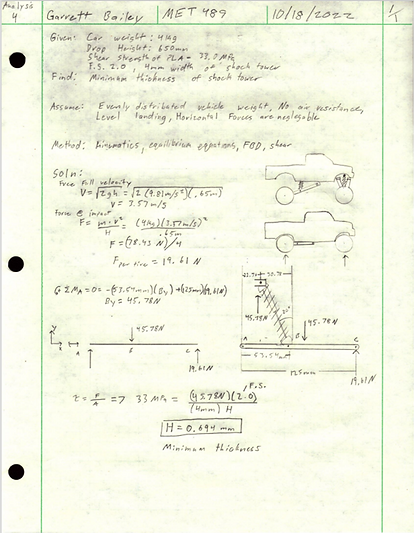 Analysis
4
Garrett Bailey
MET 489
10/18/2022
1/1
Given: Car weight: 4kg
Drop Height: 650mm
Shear Strength of PLA - 33.0 MPa
F.S. 2.0, 4mm width of shock tower
Find: Minimum thickness of shock tower
Assume: Evenly distributed vehicle weight, No air resistance,
Level landing, Horizontal Forces are neglegable
Method: Kinematics, equilibrium equations, FBD, shear
Soln:
Free Fall velocity
V = √2gh = √2(9.81m/s²)(.65m)
V = 3.57 m/s
Force @ impact
F = m·v²/H = (4kg)(3.57m/s)²/.65m
F = (78.43 N)/4
F per tire = 19.61 N
↺ ΣMA = 0 = -(53.54mm)(By) + (125mm)(19.61N)
By = 45.78N
45.78N
45.78N
A
B
C
53.54mm
125mm
19.61N
Y
X
A
45.78N
B
C
19.61N
τ = F/A => 33 MPa = (45.78N)(2.0)/(4mm) H
F.S.
H = 0.694 mm
Minimum thickness